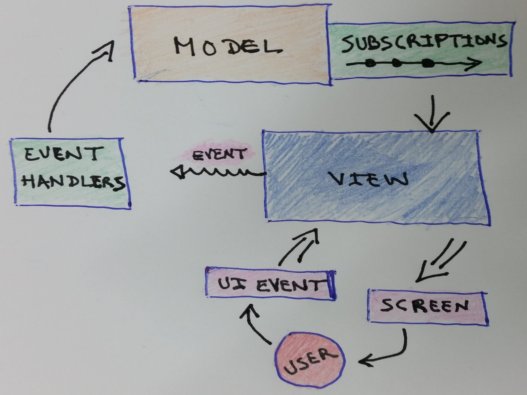 MODEL
SUBSCRIPTIONS
EVENT
HANDLERS
EVENT
VIEW
UI EVENT
SCREEN
USER